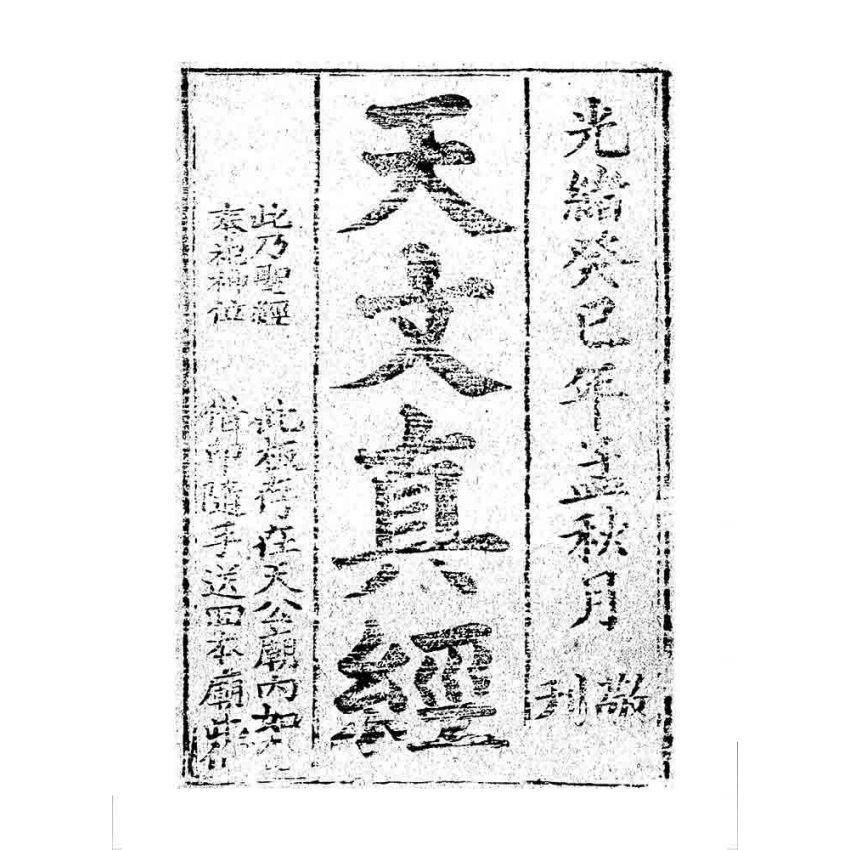 光緒癸巳年孟秋月
敬刊
天文真經
此乃聖經
奉祀神位
此板存在天公廟內如有
借印隨手送回本廟